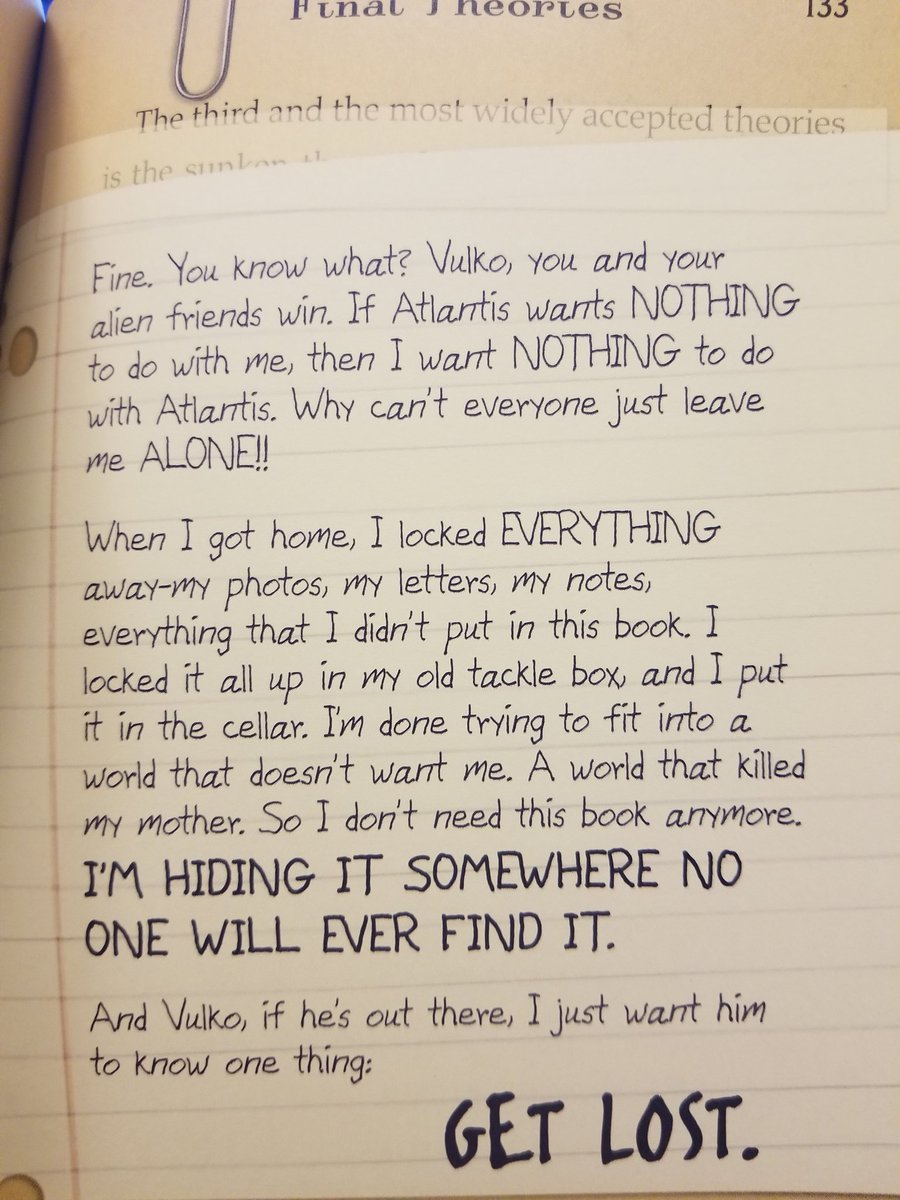 Final Theories 133
The third and the most widely accepted theories
is the sunken
Fine. You know what? Vulko, you and your
alien friends win. If Atlantis wants NOTHING
to do with me, then I want NOTHING to do
with Atlantis. Why can't everyone just leave
me ALONE!!
When I got home, I locked EVERYTHING
away-my photos, my letters, my notes,
everything that I didn't put in this book. I
locked it all up in my old tackle box, and I put
it in the cellar. I'm done trying to fit into a
world that doesn't want me. A world that killed
my mother. So I don't need this book anymore.
I'M HIDING IT SOMEWHERE NO
ONE WILL EVER FIND IT.
And Vulko, if he's out there, I just want him
to know one thing:
GET LOST.